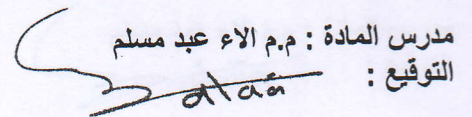 مدرس المادة : م.م الاء عبد مسلم
التوقيع :
alaa